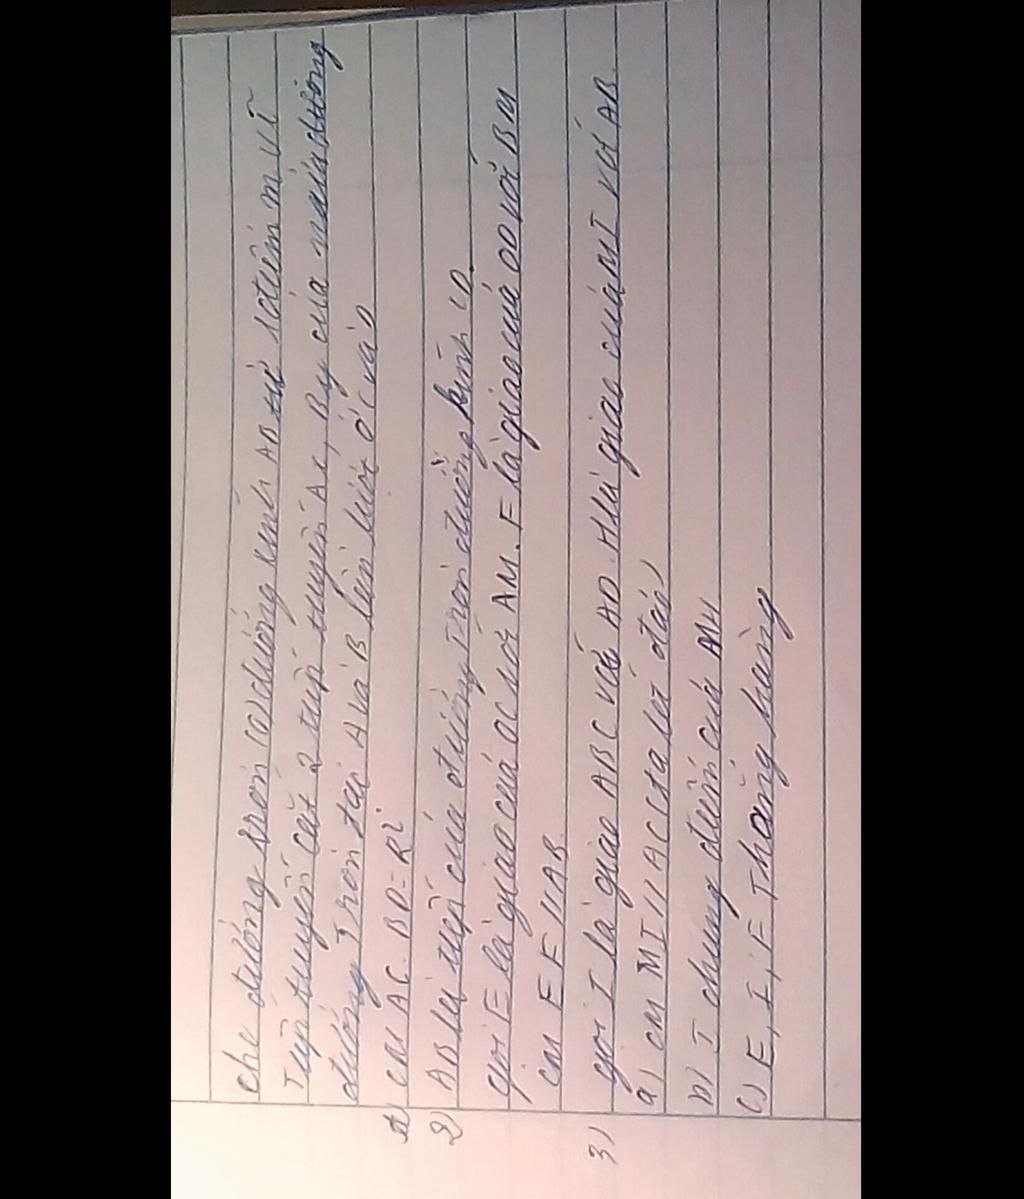 cho đường tròn (O) đường kính AB từ 1 điểm M vẽ
Tiếp tuyến cắt 2 tiếp tuyến Ax, By của nửa đường
đường tròn tại A và B lần lượt ở C và D
1) CM AC. BD = R²
2) AB là tiếp của đường Tròn đường kính CD.
gọi E là giao của OC với AM. F là giao của OD với BM
CM EF // AB
3) gọi I là giao ABC và AD. H là giao của MI với AB.
a) CM MI // AC (ta lét đảo)
b) I chung điểm của MH
c) E, I, F Thẳng hàng